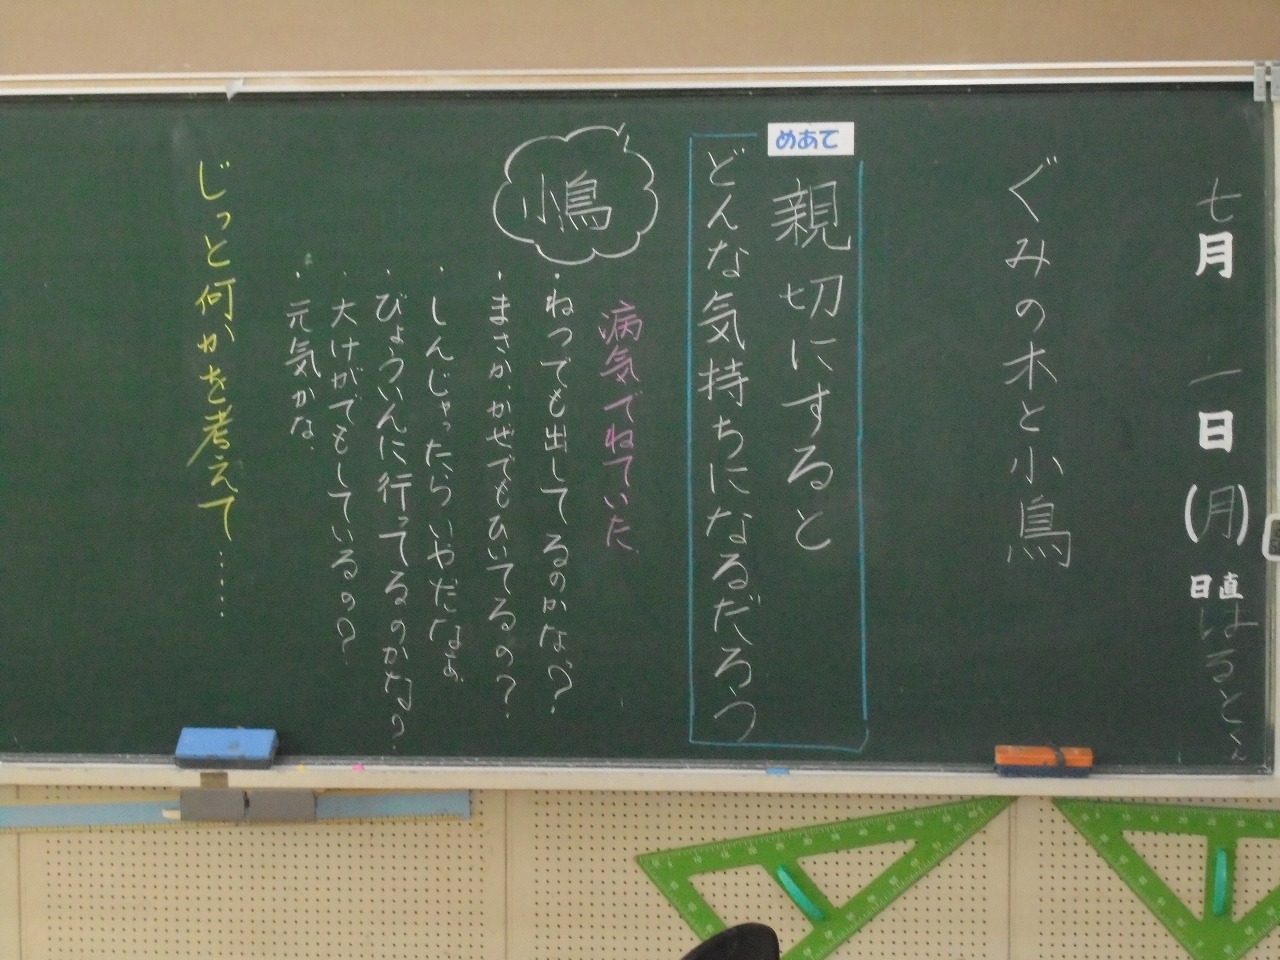 七月一日(月)
日直 はるとくん
ぐみの木と小鳥
めあて
親切にすると
どんな気持ちになるだろう
小鳥
病気でねていた
・ねつでも出してるのかな?
・まさか、かぜでもひいてるの?
・しんじゃったらいやだなぁ
・びょういんに行ってるのかな?
・大けがでもしているの?
・元気かな。
じっと何かを考えて……